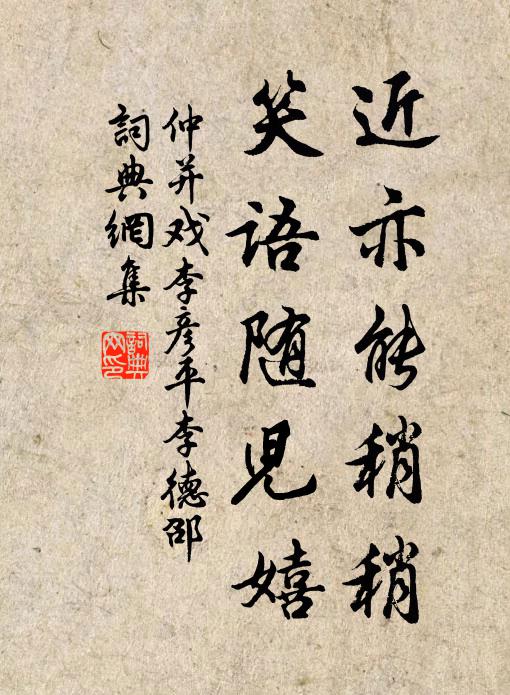 近亦能稍稍
笑语随児嬉
仲并戏李彦平李德邵
詞典網集
詞典
网印